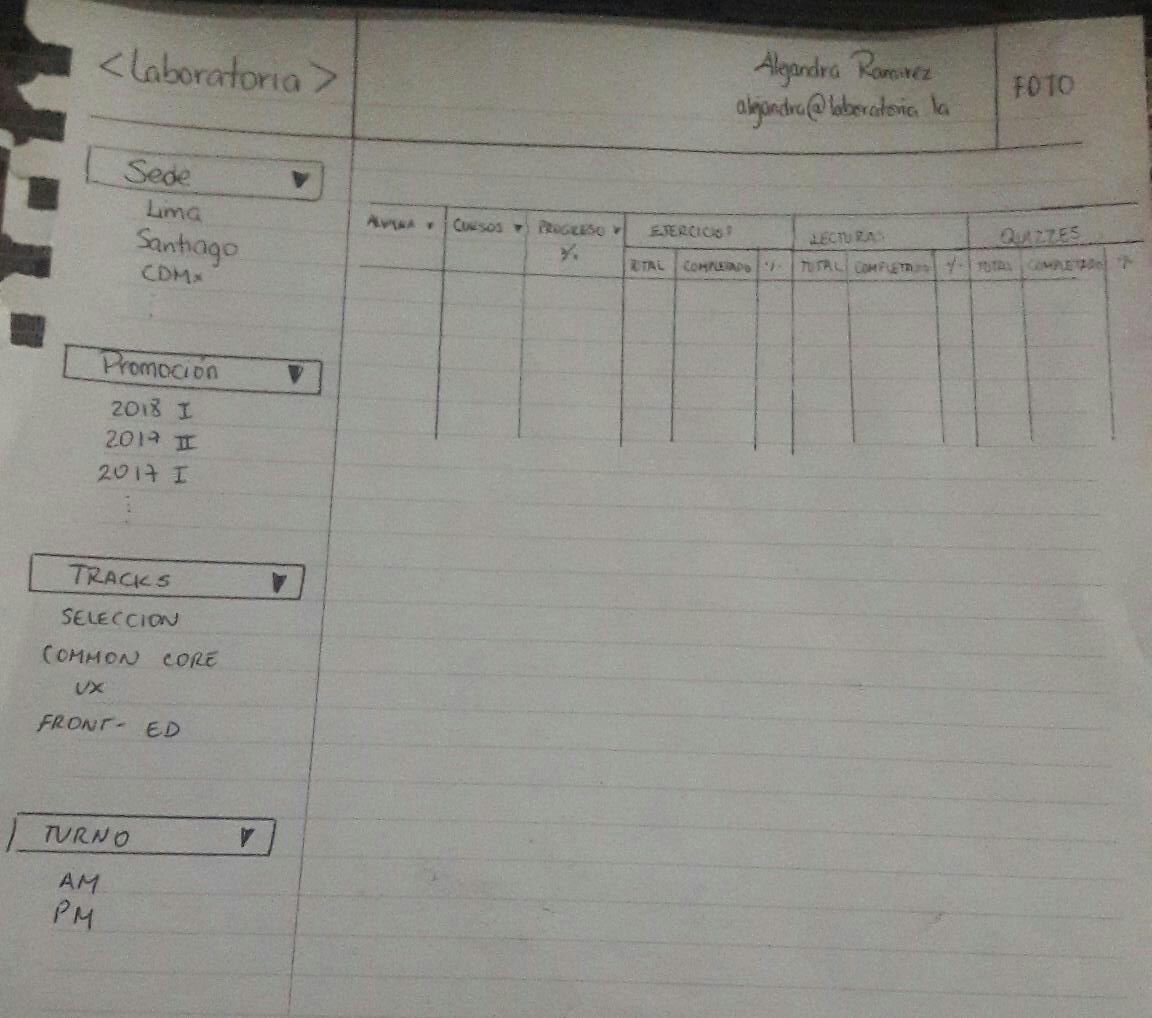 <Laboratoria>
Alejandra Ramirez
alejandra@laboratoria.la
FOTO
Sede ▼
Lima
Santiago
CDMx
⋮
Promoción ▼
2018 I
2017 II
2017 I
⋮
TRACKS ▼
SELECCION
COMMON CORE
UX
FRONT- ED
TURNO ▼
AM
PM
ALUMNA ▼ CURSOS ▼ PROGRESO ▼ EJERCICIOS LECTURAS QUIZZES
% TOTAL COMPLETADO % TOTAL COMPLETADO % TOTAL COMPLETADO %